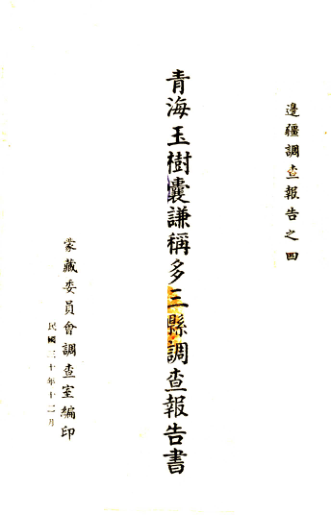 邊疆調查報告之四
青海玉樹囊謙稱多三縣調查報告書
蒙藏委員會調查室編印
民國三十年十二月